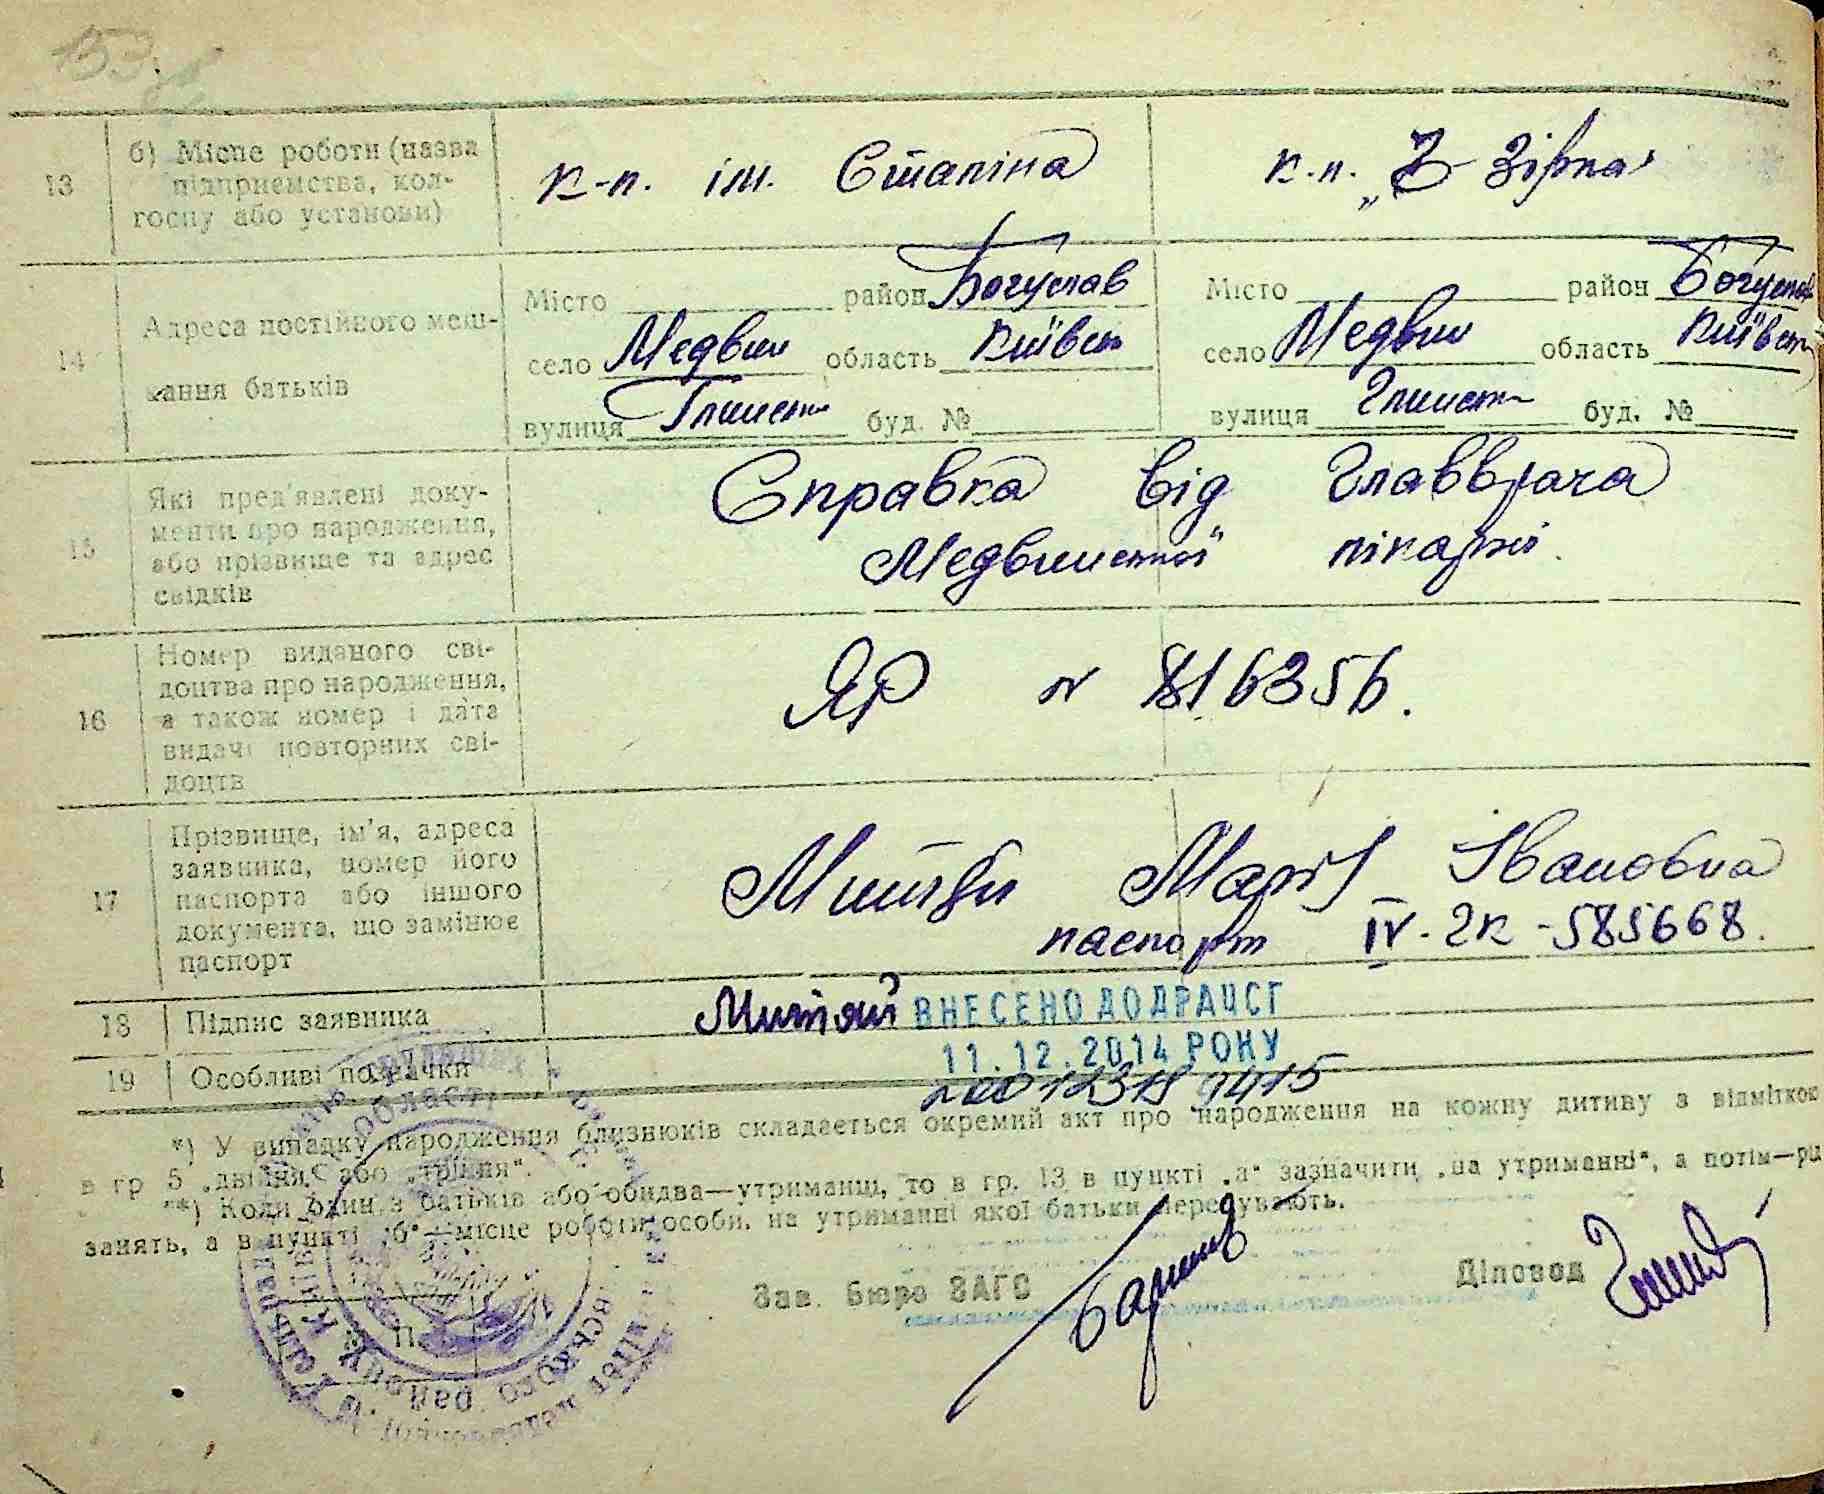 153
13
б) Місце роботи (назва
підприємства, кол-
госпу або установи)
к-п. ім. Сталіна
к.п. „З-Зірка"
14
Адреса постійного меш-
кання батьків
Місто район Богуслав
село Медвин область Київськ
вулиця Глинськ буд. №
Місто район Богуслав
село Медвин область Київськ
вулиця Глинськ буд. №
15
Які пред'явлені доку-
менти про народження,
або прізвище та адрес
свідків
Справка від Главврача
Медвинської лікарні.
16
Номер виданого сві-
доцтва про народження,
а також номер і дата
видачі повторних сві-
доцтв
ЯР № 816356.
17
Прізвище, ім'я, адреса
заявника, номер його
паспорта або іншого
документа, що замінює
паспорт
Марія Івановна
паспорт IV-ГК-585668.
18 Підпис заявника
ВНЕСЕНО ДО ДРАЦСГ
11.12.2014 РОКУ
19 Особливі позначки
*) У випадку народження близнюків складається окремий акт про народження на кожну дитину з відміткою
в гр 5 „двійня" або „трійня".
**) Коли один з батьків або обидва—утриманці, то в гр. 13 в пункті „а" зазначити „на утриманні", а потім—рід
занять, а в пункті „б"—місце роботи особи, на утриманні якої батьки перебувають.
Зав. бюро ЗАГС
Діловод